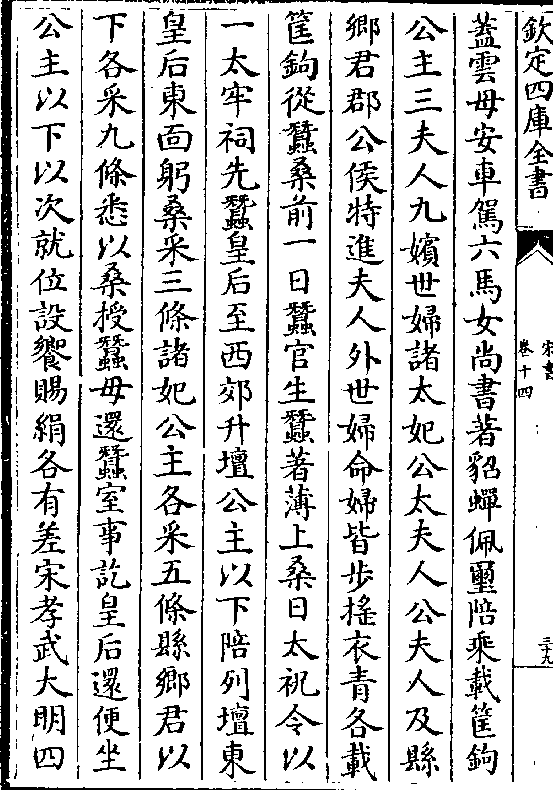 欽定四庫全書
宋書
卷十四
三十九
蓋雲母安車駕六馬女尚書著貂蟬佩璽陪乘載筐鉤
公主三夫人九嬪世婦諸太妃公太夫人公夫人及縣
鄉君郡公侯特進夫人外世婦命婦皆步搖衣青各載
筐鉤從蠶桑前一日蠶官生蠶著薄上桑日太祝令以
一太牢祠先蠶皇后至西郊升壇公主以下陪列壇東
皇后東面躬桑采三條諸妃公主各采五條縣鄉君以
下各采九條悉以桑授蠶母還蠶室事訖皇后還便坐
公主以下以次就位設饗賜絹各有差宋孝武大明四